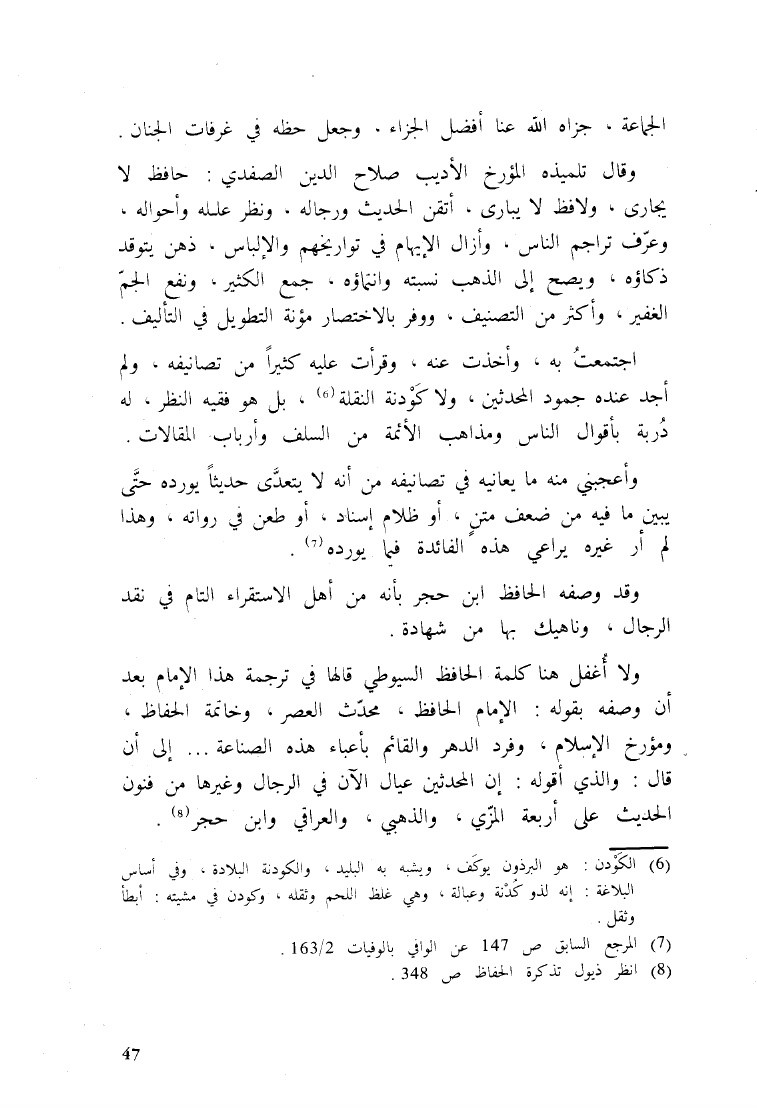 الجماعة ، جزاه الله عنا أفضل الجزاء . وجعل حظه في غرفات الجنان .
وقال تلميذه المؤرخ الأديب صلاح الدين الصفدي : حافظ لا
يجارى ، ولافظ لا يبارى ، أتقن الحديث ورجاله . ونظر علله وأحواله ،
وعرّف تراجم الناس ، وأزال الإبهام في تواريخهم والإلباس . ذهن يتوقد
ذكاؤه ، ويصح إلى الذهب نسبته وانتماؤه ، جمع الكثير ، ونفع الجمّ
الغفير ، وأكثر من التصنيف ، ووفر بالاختصار مؤنة التطويل في التأليف .
اجتمعتُ به ، وأخذت عنه ، وقرأت عليه كثيراً من تصانيفه ، ولم
أجد عنده جمود المحدثين ، ولا كَوْدنة النقلة (6) ، بل هو فقيه النظر ، له
دُربة بأقوال الناس ومذاهب الأئمة من السلف وأرباب المقالات .
وأعجبني منه ما يعانيه في تصانيفه من أنه لا يتعدّى حديثاً يورده حتّى
يبين ما فيه من ضعف متن ، أو ظلام إسناد ، أو طعن في رواته ، وهذا
لم أر غيره يراعي هذه الفائدة فيما يورده (7) .
وقد وصفه الحافظ ابن حجر بأنه من أهل الاستقراء التام في نقد
الرجال ، وناهيك بها من شهادة .
ولا أُغفل هنا كلمة الحافظ السيوطي قالها في ترجمة هذا الإمام بعد
أن وصفه بقوله : الإمام الحافظ ، محدّث العصر ، وخاتمة الحفاظ ،
ومؤرخ الإسلام ، وفرد الدهر والقائم بأعباء هذه الصناعة ... إلى أن
قال : والذي أقوله : إن المحدثين عيال الآن في الرجال وغيرها من فنون
الحديث على أربعة المزّي ، والذهبي ، والعراقي وابن حجر (8) .
(6) الكَوْدن : هو البرذون يوكَف ، ويشبه به البليد ، والكودنة البلادة ، وفي أساس
البلاغة : إنه لذو كَدْنة وعبالة ، وهي غلظ اللحم وثقله ، وكودن في مشيته : أبطأ
وثقل .
(7) المرجع السابق ص 147 عن الوافي بالوفيات 163/2 .
(8) انظر ذيول تذكرة الحفاظ ص 348 .
47